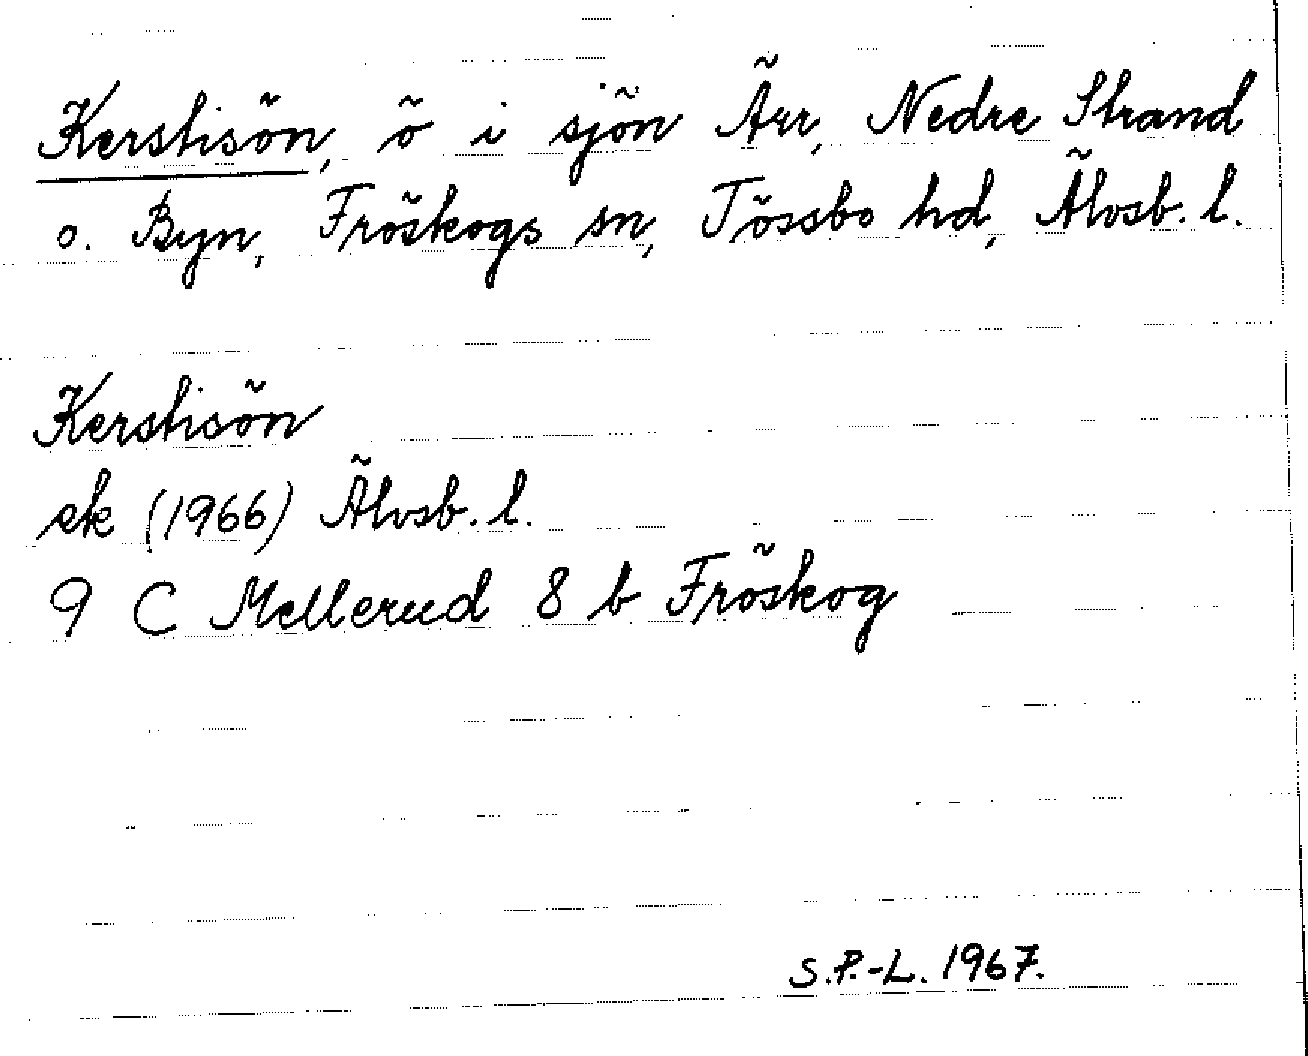 Kerstisön, ö i sjön Ärr, Nedre Strand
o. Byn, Fröskogs sn, Tössbo hd, Älvsb. l.
Kerstisön
ek (1966) Älvsb. l.
9 C Mellerud 8 b Fröskog
S.P.-L. 1967.